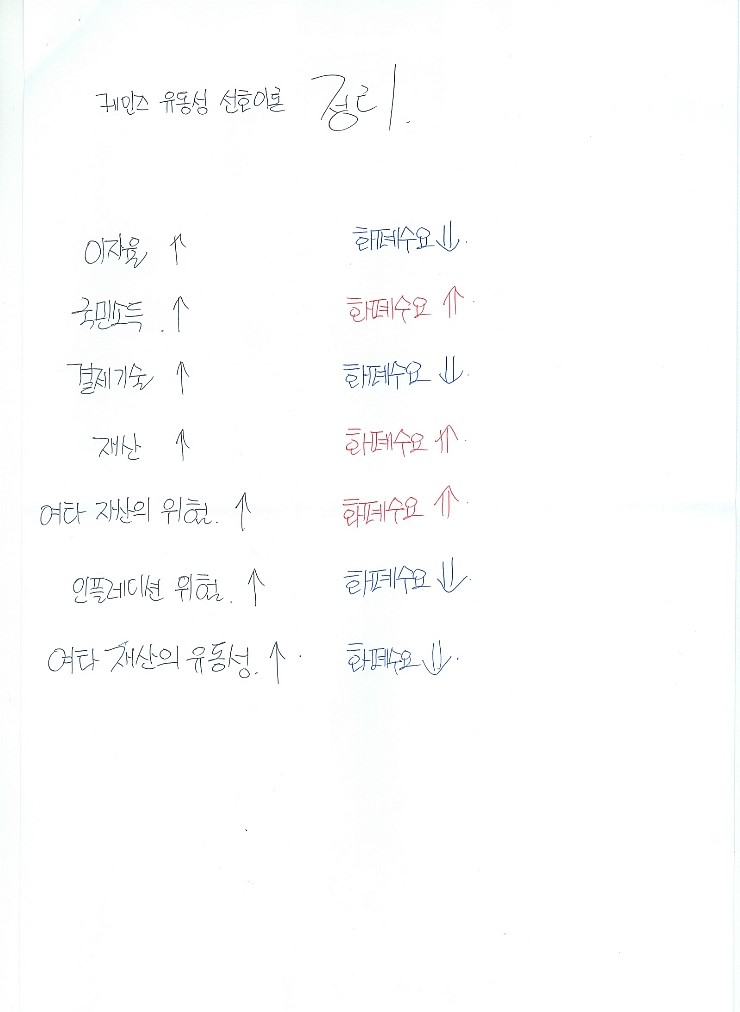 케인즈 유동성 선호이론 정리.
이자율 ↑ 화폐수요 ⇓.
국민소득. ↑ 화폐수요 ⇑.
결제기술 ↑ 화폐수요 ⇓.
재산 ↑ 화폐수요 ⇑.
여타 자산의 위험. ↑ 화폐수요 ⇑.
인플레이션 위험. ↑ 화폐수요 ⇓.
여타 재산의 유동성. ↑. 화폐수요 ⇓.